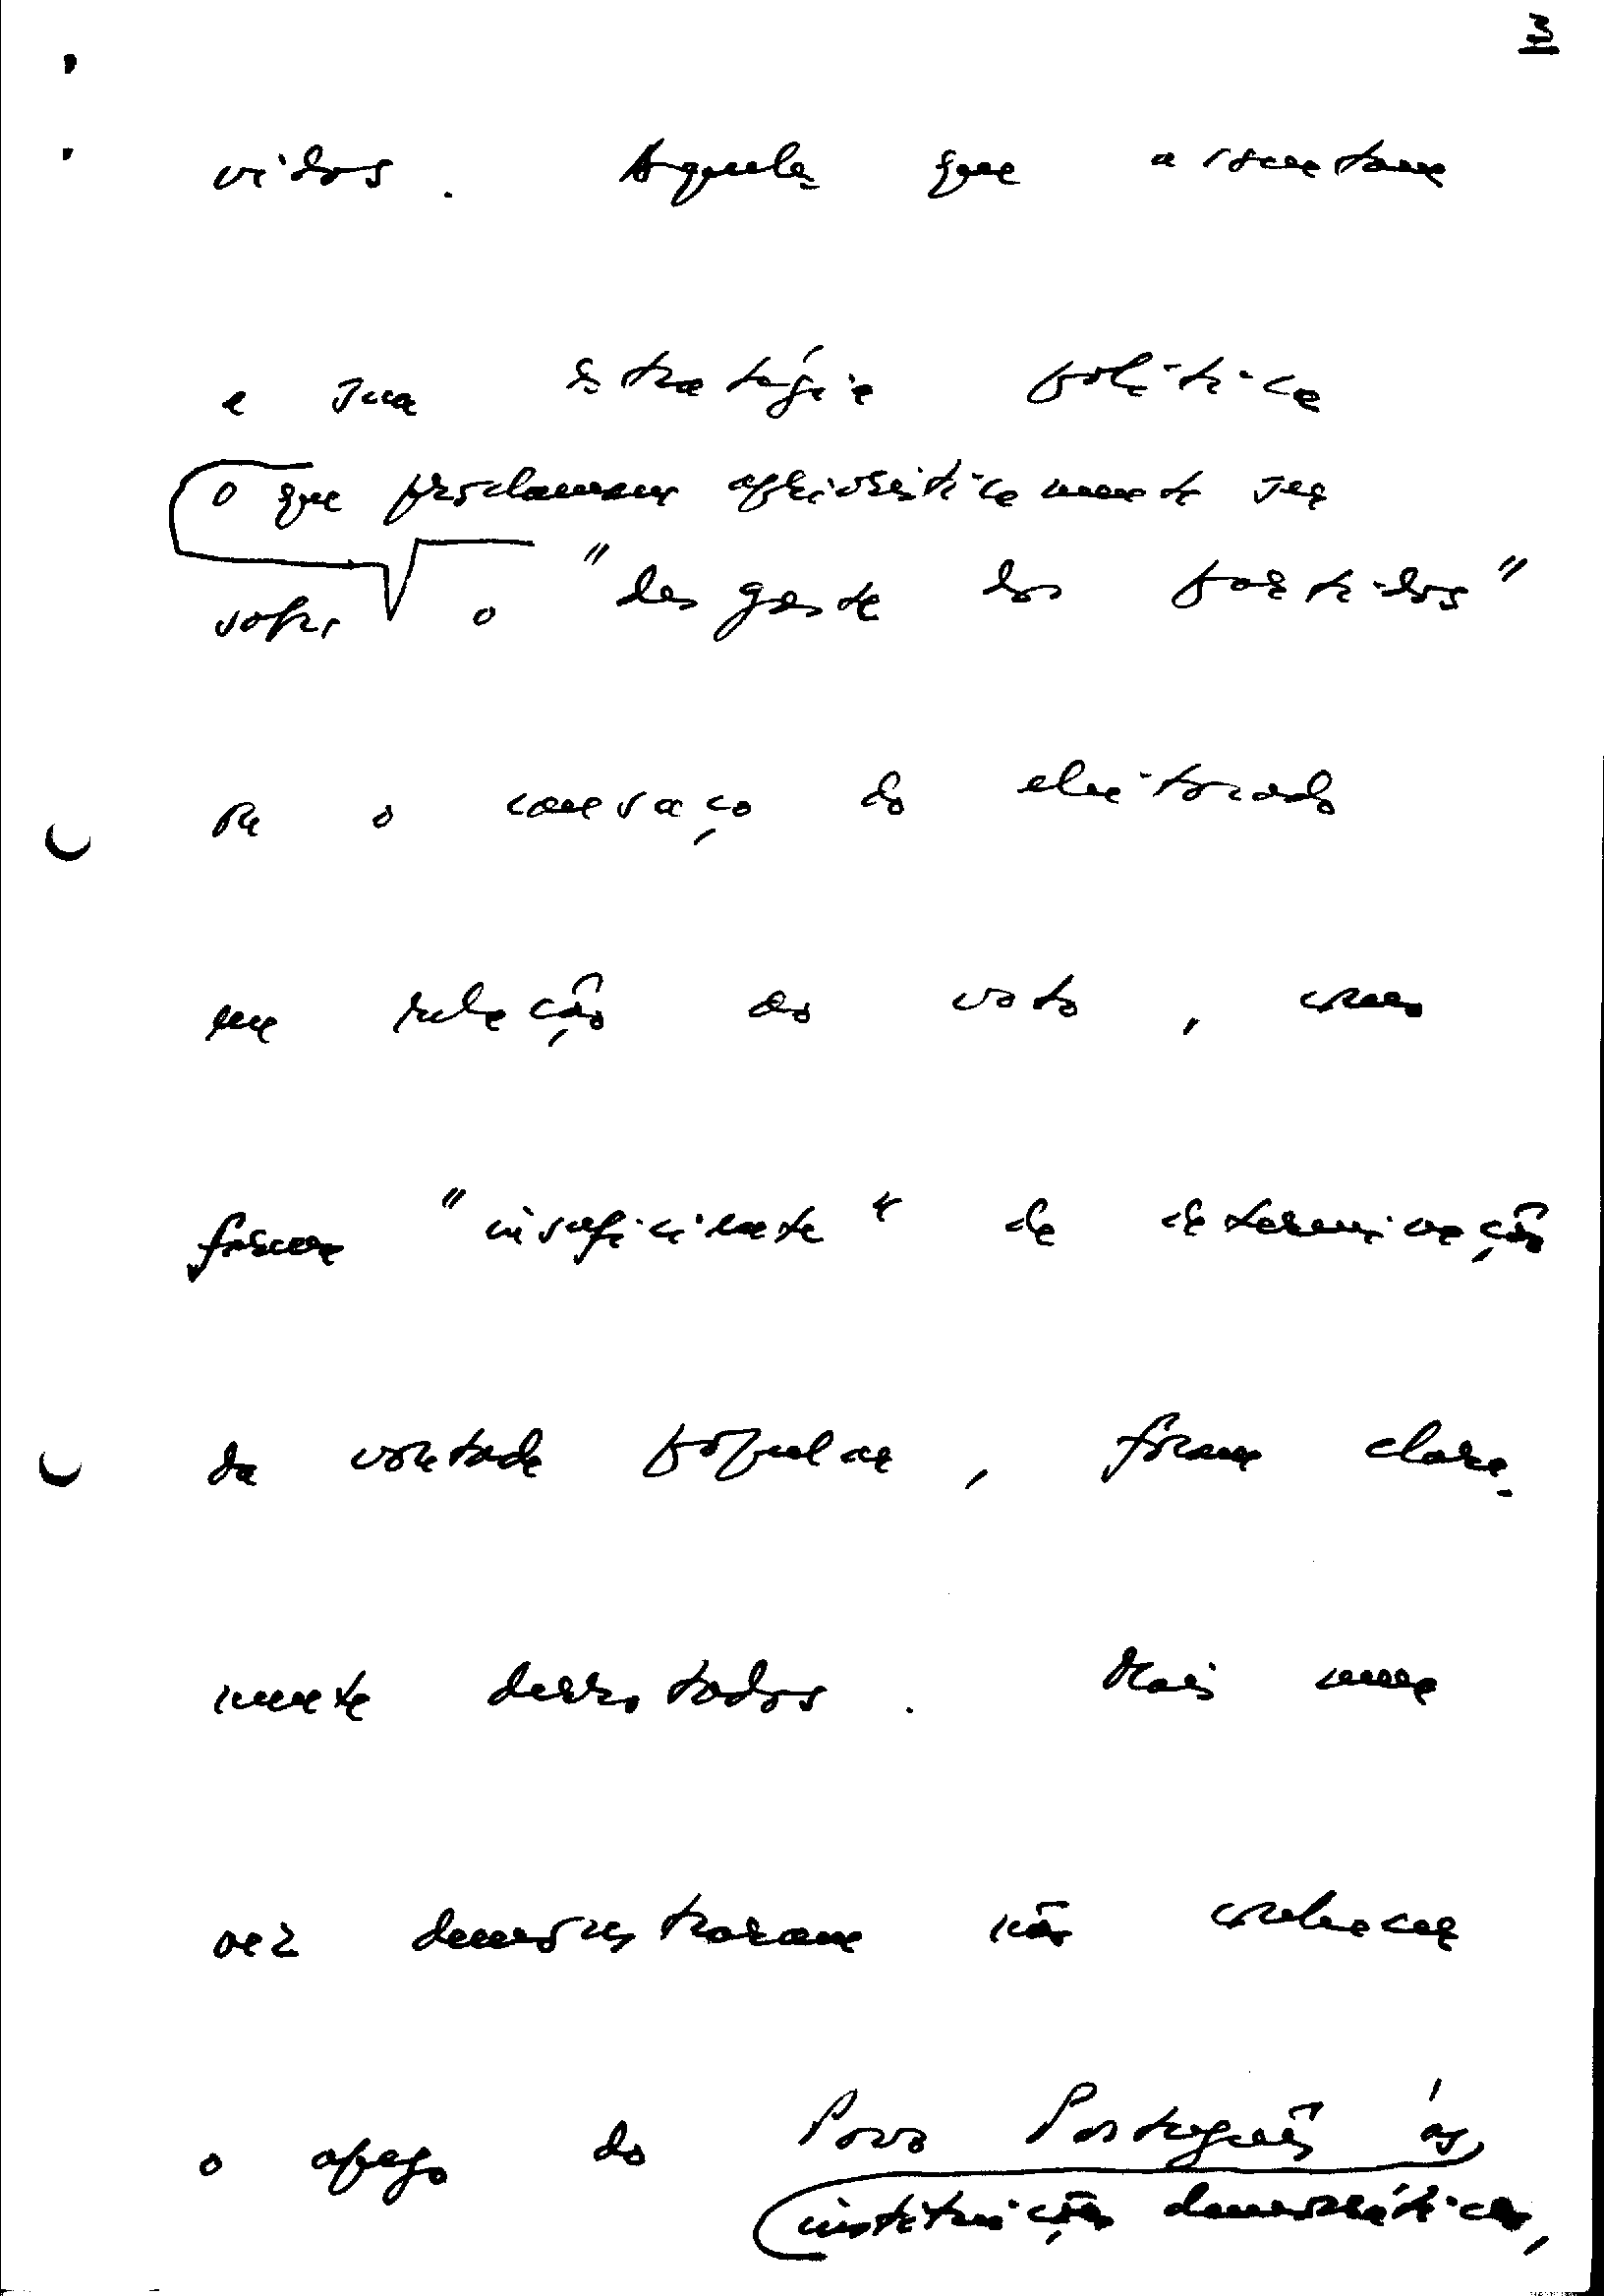 3
vidos. Aqueles que assentam
a sua estratégia política
o que proclamam aprioristicamente ser
sobre o "desgaste dos partidos"
ou o cansaço do eleitorado
em relação ao voto, como
forma "insuficiente" de determinação
da vontade popular, foram clara-
mente derrotados. Mais uma
vez demonstraram não conhecer
o apego do Povo Português às
instituições democráticas,